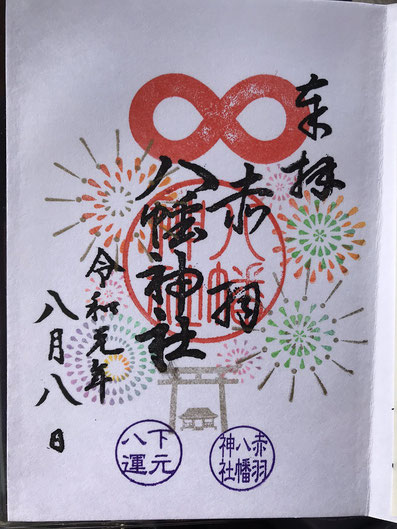 奉拝
赤羽
八幡神社
令和元年
八月八日
八幡
神社
赤羽
八幡
神社
下元
八運